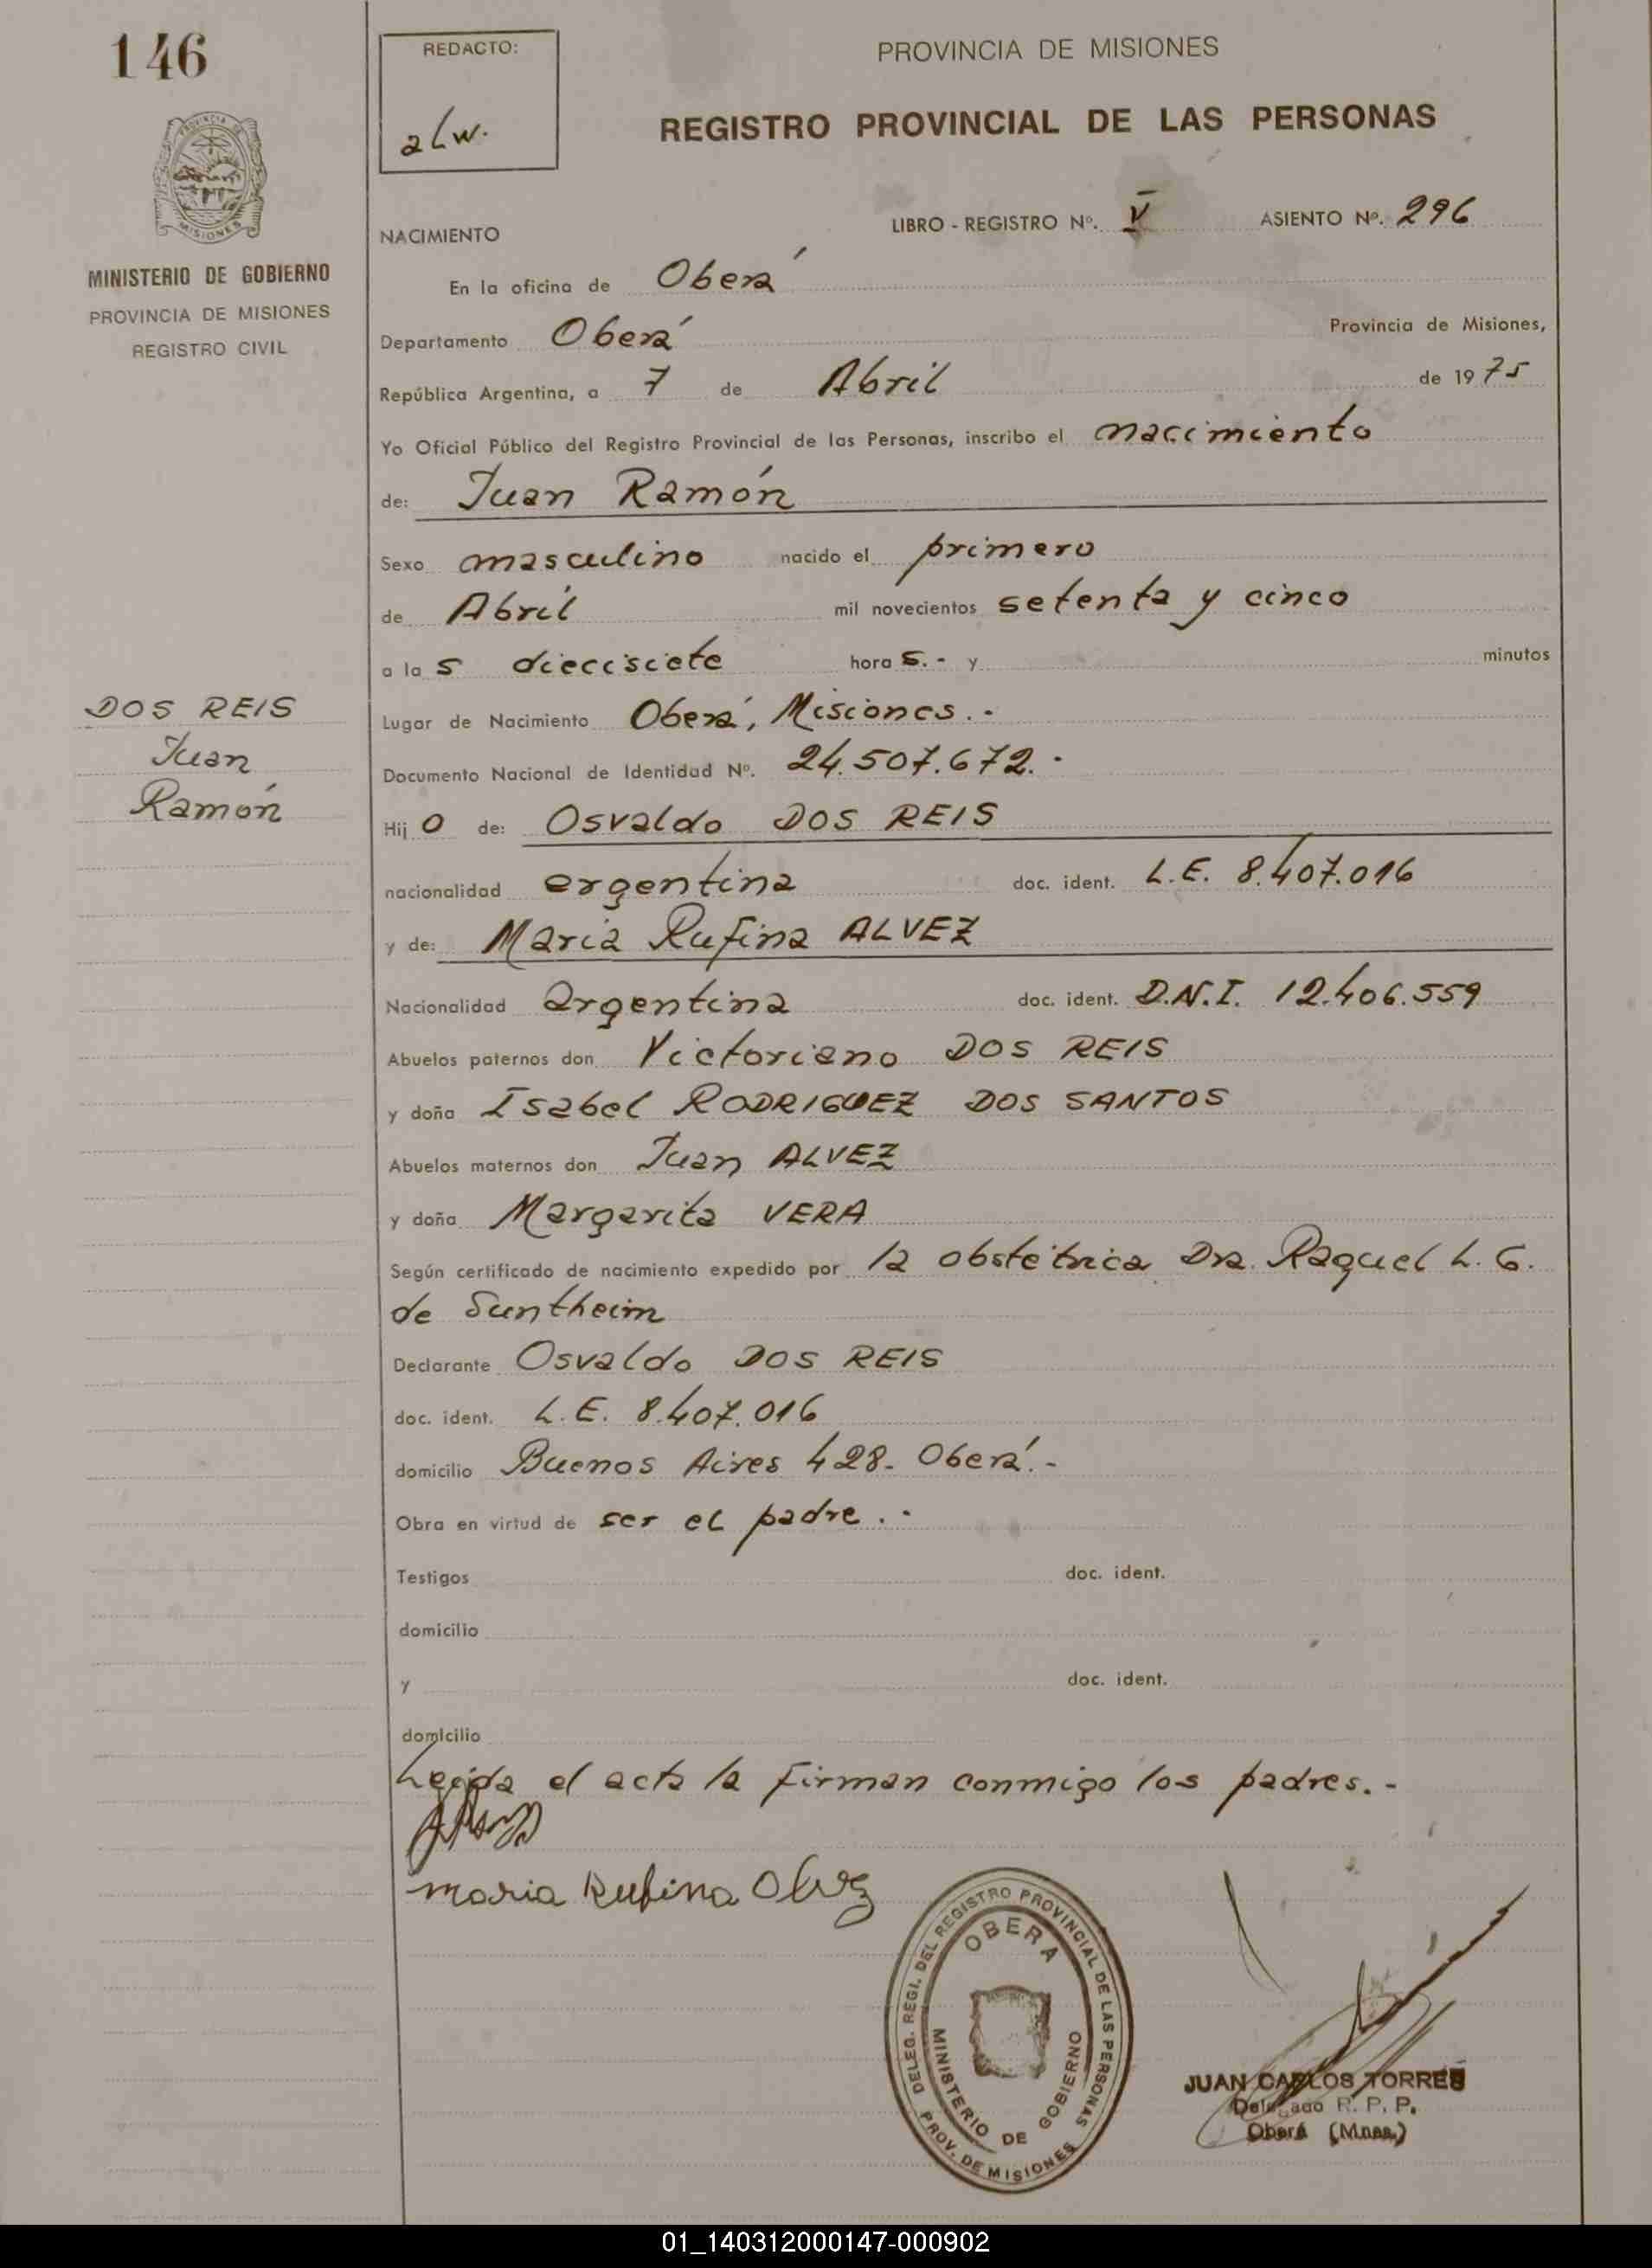 146
REDACTO:
alw.
PROVINCIA DE MISIONES
REGISTRO PROVINCIAL DE LAS PERSONAS
PROVINCIA DE
MISIONES
MINISTERIO DE GOBIERNO
PROVINCIA DE MISIONES
REGISTRO CIVIL
NACIMIENTO LIBRO - REGISTRO Nº. V ASIENTO Nº. 296
En la oficina de Oberá
Departamento Oberá Provincia de Misiones,
República Argentina, a 7 de Abril de 1975
Yo Oficial Público del Registro Provincial de las Personas, inscribo el nacimiento
de: Juan Ramón
Sexo masculino nacido el primero
de Abril mil novecientos setenta y cinco
a las diecisiete horas.- y minutos
DOS REIS
Juan
Ramón
Lugar de Nacimiento Oberá, Misiones.-
Documento Nacional de Identidad Nº. 24.507.672.-
Hijo de: Osvaldo DOS REIS
nacionalidad argentina doc. ident. L.E. 8.407.016
y de: María Rufina ALVEZ
Nacionalidad argentina doc. ident. D.N.I. 12.406.559
Abuelos paternos don Victoriano DOS REIS
y doña Isabel RODRIGUEZ DOS SANTOS
Abuelos maternos don Juan ALVEZ
y doña Margarita VERA
Según certificado de nacimiento expedido por la obstétrica Dra. Raquel L. G.
de Suntheim
Declarante Osvaldo DOS REIS
doc. ident. L.E. 8.407.016
domicilio Buenos Aires 428- Oberá.-
Obra en virtud de ser el padre.-
Testigos doc. ident.
domicilio
y doc. ident.
domicilio
Leída el acta la firman conmigo los padres.-
maria Rufina Olvez
DELEG. REGI. DEL REGISTRO PROVINCIAL DE LAS PERSONAS
OBERA
MINISTERIO DE GOBIERNO
PROV. DE MISIONES
JUAN CARLOS TORRES
Delegado R. P. P.
Oberá (Mnes.)
01_140312000147-000902